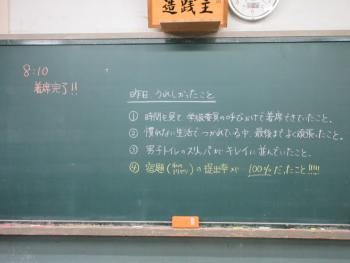 主践造
8:10
着席完了!!
昨日 うれしかったこと
① 時間を見て 学級委員の呼びかけで着席できていたこと。
② 慣れない生活でつかれている中、最後までよく頑張ったこと。
③ 男子トイレのスリッパがキレイに並んでいたこと。
④ 宿題( )の提出率が 100%だったこと!!!!!